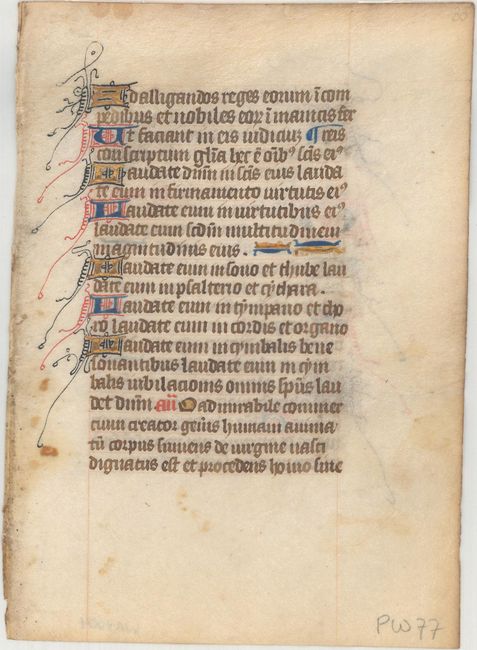 Ad alligandos reges eorum ī com
pedibus et nobiles eoꝝ ī manicis fer
Ut faciant in eis iudiciū ¶ reis
conscriptum glīa hec ē oībꝰ scīs eiꝰ
Laudate dnm in scīs eius lauda
te eum in firmamento virtutis eiꝰ
Laudate eum in virtutibus eiꝰ
laudate eum scdm multitudinem
magnitudinis eius.
Laudate eum in sono et thube lau
date eum in psalterio et cythara.
Laudate eum in tympano et cho
ro laudate eum in cordis et organo
Laudate eum in cymbalis bene
sonantibus laudate eum in cym
balis iubilacionis omnis spūs lau
det dnm añ O admirabile commer
cium creator gen̄is humani anima
tū corpus sumens de virgine nasci
dignatus est et procedens homo sine
PW77